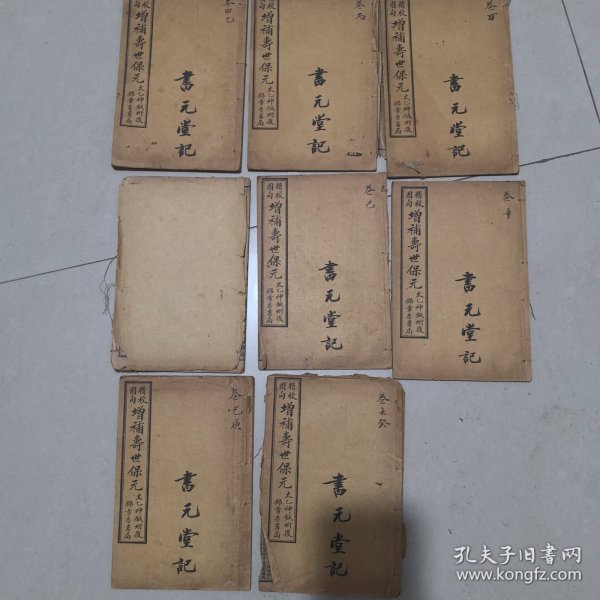 卷甲乙
增補壽世保元
太乙神鍼附後
錦章書局
書元堂記
卷丙
增補壽世保元
太乙神鍼附後
錦章書局
書元堂記
增補壽世保元
太乙神鍼附後
錦章書局
書元堂記
卷己
精校
圈句
增補壽世保元
太乙神鍼附後
錦章書局
書元堂記
卷辛
精校
圈句
增補壽世保元
太乙神鍼附後
錦章書局
書元堂記
精校
圈句
增補壽世保元
太乙神鍼附後
錦章書局
書元堂記
精校
圈句
增補壽世保元
太乙神鍼附後
錦章書局
書元堂記
孔夫子旧书网
www.kongfz.com